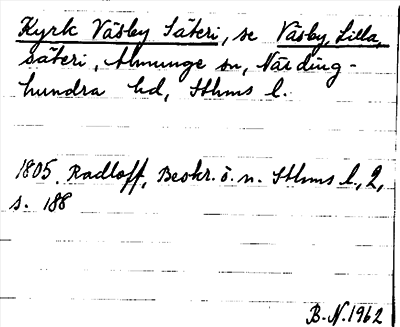 Kyrk Väsby Säteri, se Väsby, Lilla,
säteri, Almunge sn, Närding-
hundra hd, Sthms l.
1805. Radloff, Beskr. ö. n. Sthms l., 2,
s. 188
B-N. 1962